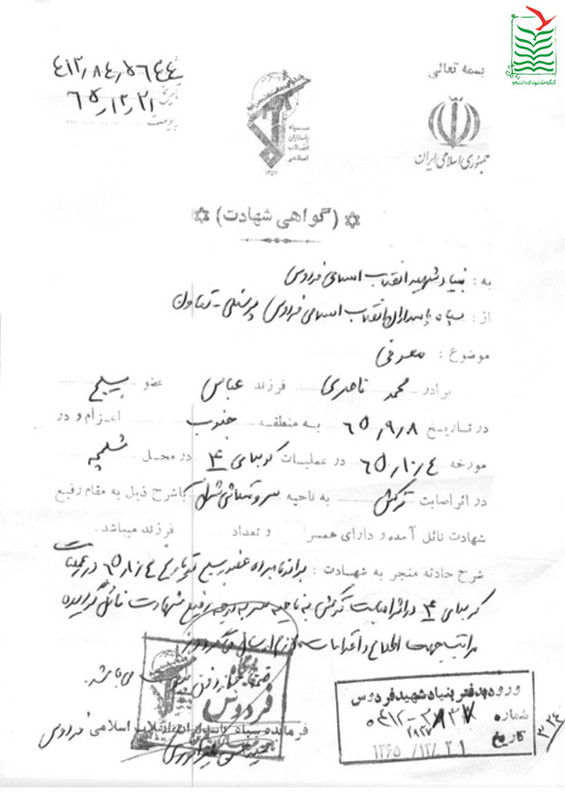 بسمه تعالی
جمهوری اسلامی ایران
سپاه
پاسداران
انقلاب
اسلامی
شماره ۴۱۲/۸۴/۵۶۴۴
تاریخ ۶۵/۱۲/۲۱
پیوست
(گواهی شهادت)
به : بنیاد شهید انقلاب اسلامی فردوس
از : سپاه پاسداران انقلاب اسلامی فردوس پرسنلی - تعاون
موضوع : معرفی
برادر محمد ناصری فرزند عباس عضو بسیج
در تاریخ ۶۵/۹/۸ به منطقه جنوب اعزام و در
مورخه ۶۵/۱۰/۴ در عملیات کربلای ۴ در محل شلمچه
در اثر اصابت ترکش به ناحیه سر و باشرح ذیل به مقام رفیع
شهادت نائل آمده و دارای همسر و تعداد فرزند میباشد.
شرح حادثه منجر به شهادت : برادر نامبرده عضو بسیج در عملیات
کربلای ۴ در اثر اصابت ترکش به ناحیه سر به درجه رفیع شهادت نائل گردیده
مراتب جهت اطلاع و اقدامات لازم ارسال میگردد
می باشد.
فردوس
فرمانده سپاه پاسداران انقلاب اسلامی فردوس
ورود بدفتر بنیاد شهید فردوس
شماره
تاریخ ۱۳۶۵/۱۲/۲۱